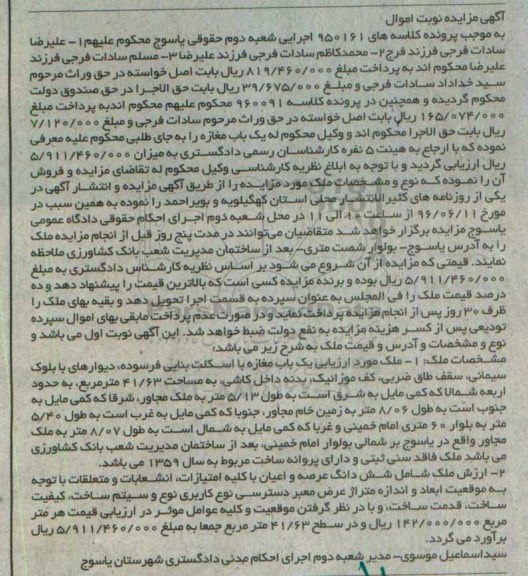 آگهی مزایده نوبت اموال
به موجب پرونده کلاسه های ۹۵۰۱۶۱ اجرایی شعبه دوم حقوقی یاسوج محکوم علیهم۱- علیرضا
سادات فرجی فرزند فرج۲- محمدکاظم سادات فرجی فرزند علیرضا۳- مسلم سادات فرجی فرزند
علیرضا محکوم اند به پرداخت مبلغ ۸۱۹/۴۶۰/۰۰۰ ریال بابت اصل خواسته در حق وراث مرحوم
سید خداداد سادات فرجی و مبلغ ۳۹/۶۷۵/۰۰۰ ریال بابت حق الاجرا در حق صندوق دولت
محکوم گردیده و همچنین در پرونده کلاسه ۹۶۰۰۹۱ محکوم علیهم محکوم اندبه پرداخت مبلغ
۱۶۵/۰۷۴/۰۰۰ ریال بابت اصل خواسته در حق وراث مرحوم سادات فرجی و مبلغ ۷/۱۲۰/۰۰۰
ریال بابت حق الاجرا محکوم اند و وکیل محکوم له یک باب مغازه را به جای طلبی محکوم علیه معرفی
نموده که با ارجاع به هیئت ۵ نفره کارشناسان رسمی دادگستری به میزان ۵/۹۱۱/۴۶۰/۰۰۰
ریال ارزیابی گردید و با توجه به ابلاغ نظریه کارشناسی وکیل محکوم له تقاضای مزایده و فروش
آن را نموده که نوع و مشخصات ملک مورد مزایده را از طریق آگهی مزایده و انتشار آگهی در
یکی از روزنامه های کثیرالانتشار محلی استان کهگیلویه و بویراحمد را نموده به همین سبب در
مورخ ۹۶/۰۶/۱۱ از ساعت ۱۰ الی ۱۱ در محل شعبه دوم اجرای احکام حقوقی دادگاه عمومی
یاسوج مزایده برگزار خواهد شد متقاضیان می‌توانند در مدت پنج روز قبل از انجام مزایده ملک
را به آدرس یاسوج- بولوار شصت متری- بعد از ساختمان مدیریت شعب بانک کشاورزی ملاحظه
نمایند. قیمتی که مزایده از آن شروع می شود بر اساس نظریه کارشناس دادگستری به مبلغ
۵/۹۱۱/۴۶۰/۰۰۰ ریال بوده و برنده مزایده کسی است که بالاترین قیمت را پیشنهاد دهد و ده
درصد قیمت ملک را فی المجلس به عنوان سپرده به قسمت اجرا تحویل دهد و بقیه بهای ملک را
ظرف ۳۰ روز پس از انجام مزایده پرداخت نماید و در صورت عدم پرداخت مابقی بهای اموال سپرده
تودیعی پس از کسر هزینه مزایده به نفع دولت ضبط خواهد شد. این آگهی نوبت اول می باشد و
نوع و مشخصات و آدرس و قیمت ملک به شرح زیر می باشد:
مشخصات ملک: ۱- ملک مورد ارزیابی یک باب مغازه با اسکلت بنایی فرسوده، دیوارهای با بلوک
سیمانی، سقف طاق ضربی، کف موزائیک، بدنه داخل کاشی، به مساحت ۴۱/۶۳ مترمربع، به حدود
اربعه شمالا که کمی مایل به شرق است به طول ۵/۱۳ متر به ملک مجاور، شرقا که کمی مایل به
جنوب است به طول ۸/۰۶ متر به زمین خام مجاور، جنوبا که کمی مایل به غرب است به طول ۵/۴۰
متر به بلوار ۶۰ متری امام خمینی و غربا که کمی مایل به شمال است به طول ۸/۰۷ متر به ملک
مجاور واقع در یاسوج بر شمالی بولوار امام خمینی، بعد از ساختمان مدیریت شعب بانک کشاورزی
می باشد ملک فاقد سنی ثبتی و دارای پروانه ساخت مربوط به سال ۱۳۵۹ می باشد.
۲- ارزش ملک شامل شش دانگ عرصه و اعیان با کلیه امتیازات، انشعابات و متعلقات با توجه
به موقعیت ابعاد و اندازه متراژ عرض معبر دسترسی نوع کاربری نوع و سیتم ساخت، کیفیت
ساخت، قدمت ساخت، و با در نظر گرفتن موقعیت و کلیه عوامل موثر در ارزیابی قیمت هر متر
مربع ۱۴۲/۰۰۰/۰۰۰ ریال و در سطح ۴۱/۶۳ متر مربع جمعا به مبلغ ۵/۹۱۱/۴۶۰/۰۰۰ ریال
برآورد می گردد.
سیداسماعیل موسوی- مدیر شعبه دوم اجرای احکام مدنی دادگستری شهرستان یاسوج